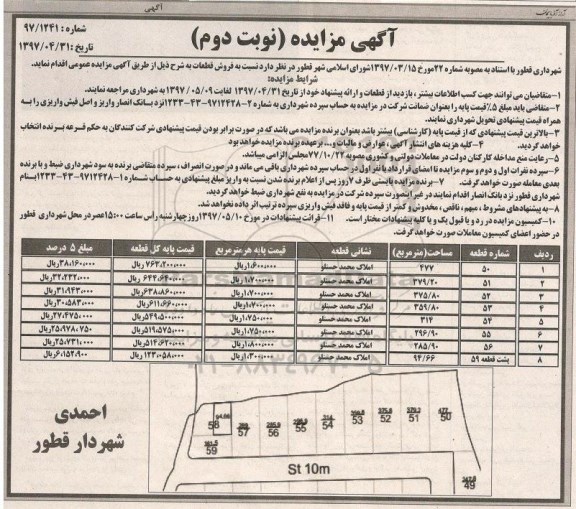 آگهی
شماره : ۹۷/۱۲۴۱
آگهی مزایده (نوبت دوم)
تاریخ: ۱۳۹۷/۰۴/۳۱
شهرداری قطور با استناد به مصوبه شماره ۲۲مورخ ۱۳۹۷/۰۳/۱۵شورای اسلامی شهر قطور در نظر دارد نسبت به فروش قطعات به شرح ذیل از طریق آگهی مزایده عمومی اقدام نماید.
شرایط مزایده:
۱-متقاضیان می توانند جهت کسب اطلاعات بیشتر ، بازدید از قطعات و ارائه پیشنهاد خود از تاریخ ۱۳۹۷/۰۴/۳۱ لغایت ۱۳۹۷/۰۵/۰۹ به شهرداری مراجعه نمایند.
۲-متقاضی باید مبلغ ۵٪ قیمت پایه را بعنوان ضمانت شرکت در مزایده به حساب سپرده شهرداری به شماره ۲-۹۷۱۲۴۲۸-۴۳-۱۲۳۳نزد بانک انصار واریز و اصل فیش واریزی را به
همراه قیمت پیشنهادی تحویل شهرداری نمایند.
۳-بالاترین قیمت پیشنهادی که از قیمت پایه (کارشناسی) بیشتر باشد بعنوان برنده مزایده می باشد که در صورت برابر بودن قیمت پیشنهادی شرکت کنندگان به حکم قرعه برنده انتخاب
خواهد گردید. ۴-کلیه هزینه های انتشار آگهی ، عوارض و مالیات و... برعهده برنده مزایده خواهد بود
۵-رعایت منع مداخله کارکنان دولت در معاملات دولتی و کشوری مصوبه ۷۷/۱۰/۲۲مجلس الزامی میباشد.
۶-سپرده نفرات اول و دوم و سوم مزایده تا امضای قرارداد با نفر اول در حساب سپرده شهرداری باقی می ماند و در صورت انصراف ، سپرده متقاضی برنده به سود شهرداری ضبط و با برنده
بعدی معامله صورت خواهد گرفت. ۷-برنده مزایده بایستی ظرف ۷روز پس از اعلام برنده شدن نسبت به واریز مبلغ پیشنهادی به حساب شماره ۱-۹۷۱۲۴۲۸-۴۳-۱۲۳۳بنام
شهرداری قطور نزد بانک انصار اقدام نمایند در غیر اینصورت سپرده شرکت در مزایده به نفع شهرداری ضبط خواهد گردید.
۸-به پیشنهادهای مشروط ، مبهم ، ناقص ، مخدوش و کمتر از قیمت پایه و فاقد فیش واریزی سپرده ترتیب اثر داده نخواهد شد.
۱۰-کمیسیون مزایده در رد و یا قبول یک و یا کلیه پیشنهادات مختار است. ۱۱-قرائت پیشنهادات در مورخ ۱۳۹۷/۰۵/۱۰روز چهارشنبه رأس ساعت ۱۵:۰۰عصردر محل شهرداری قطور
در حضور اعضای کمیسیون معاملات صورت خواهد گرفت.
ردیف شماره قطعه مساحت(مترمربع) نشانی قطعه قیمت پایه هر مترمربع قیمت پایه کل قطعه مبلغ ۵ درصد
۱ ۵۰ ۴۷۷ املاک محمد حسنلو ۱،۶۰۰،۰۰۰ریال ۷۶۳،۲۰۰،۰۰۰ریال ۳۸،۱۶۰،۰۰۰ریال
۲ ۵۱ ۳۷۹/۲۰ املاک محمد حسنلو ۱،۷۰۰،۰۰۰ریال ۶۴۴،۶۴۰،۰۰۰ریال ۳۲،۲۳۲،۰۰۰ریال
۳ ۵۲ ۳۷۵/۸۰ املاک محمد حسنلو ۱،۷۰۰،۰۰۰ریال ۶۳۸،۸۶۰،۰۰۰ریال ۳۱،۹۴۳،۰۰۰ریال
۴ ۵۳ ۳۵۹/۸۰ املاک محمد حسنلو ۱،۷۰۰،۰۰۰ریال ۶۱۱،۶۶۰،۰۰۰ریال ۳۰،۵۸۳،۰۰۰ریال
۵ ۵۴ ۳۱۴ املاک محمد حسنلو ۱،۷۵۰،۰۰۰ریال ۵۴۹،۵۰۰،۰۰۰ریال ۲۷،۴۷۵،۰۰۰ریال
۶ ۵۵ ۲۹۶/۹۰ املاک محمد حسنلو ۱،۷۵۰،۰۰۰ریال ۵۱۹،۵۷۵،۰۰۰ریال ۲۵،۹۷۸،۷۵۰ریال
۷ ۵۶ ۲۸۵/۹۰ املاک محمد حسنلو ۱،۸۰۰،۰۰۰ریال ۵۱۴،۶۲۰،۰۰۰ریال ۲۵،۷۳۱،۰۰۰ریال
۸ پشت قطعه ۵۹ ۹۴/۶۶ املاک محمد حسنلو ۱،۳۰۰،۰۰۰ریال ۱۲۳،۰۵۸،۰۰۰ریال ۶،۱۵۲،۹۰۰ریال
۰۲۱-۸۸۳۴۹۶۷۰-۵
58 57 56 55 54 53 52 51 50
94.66 285.9 314 375.8 379.2 477
59
St 10m
49
احمدی
شهردار قطور